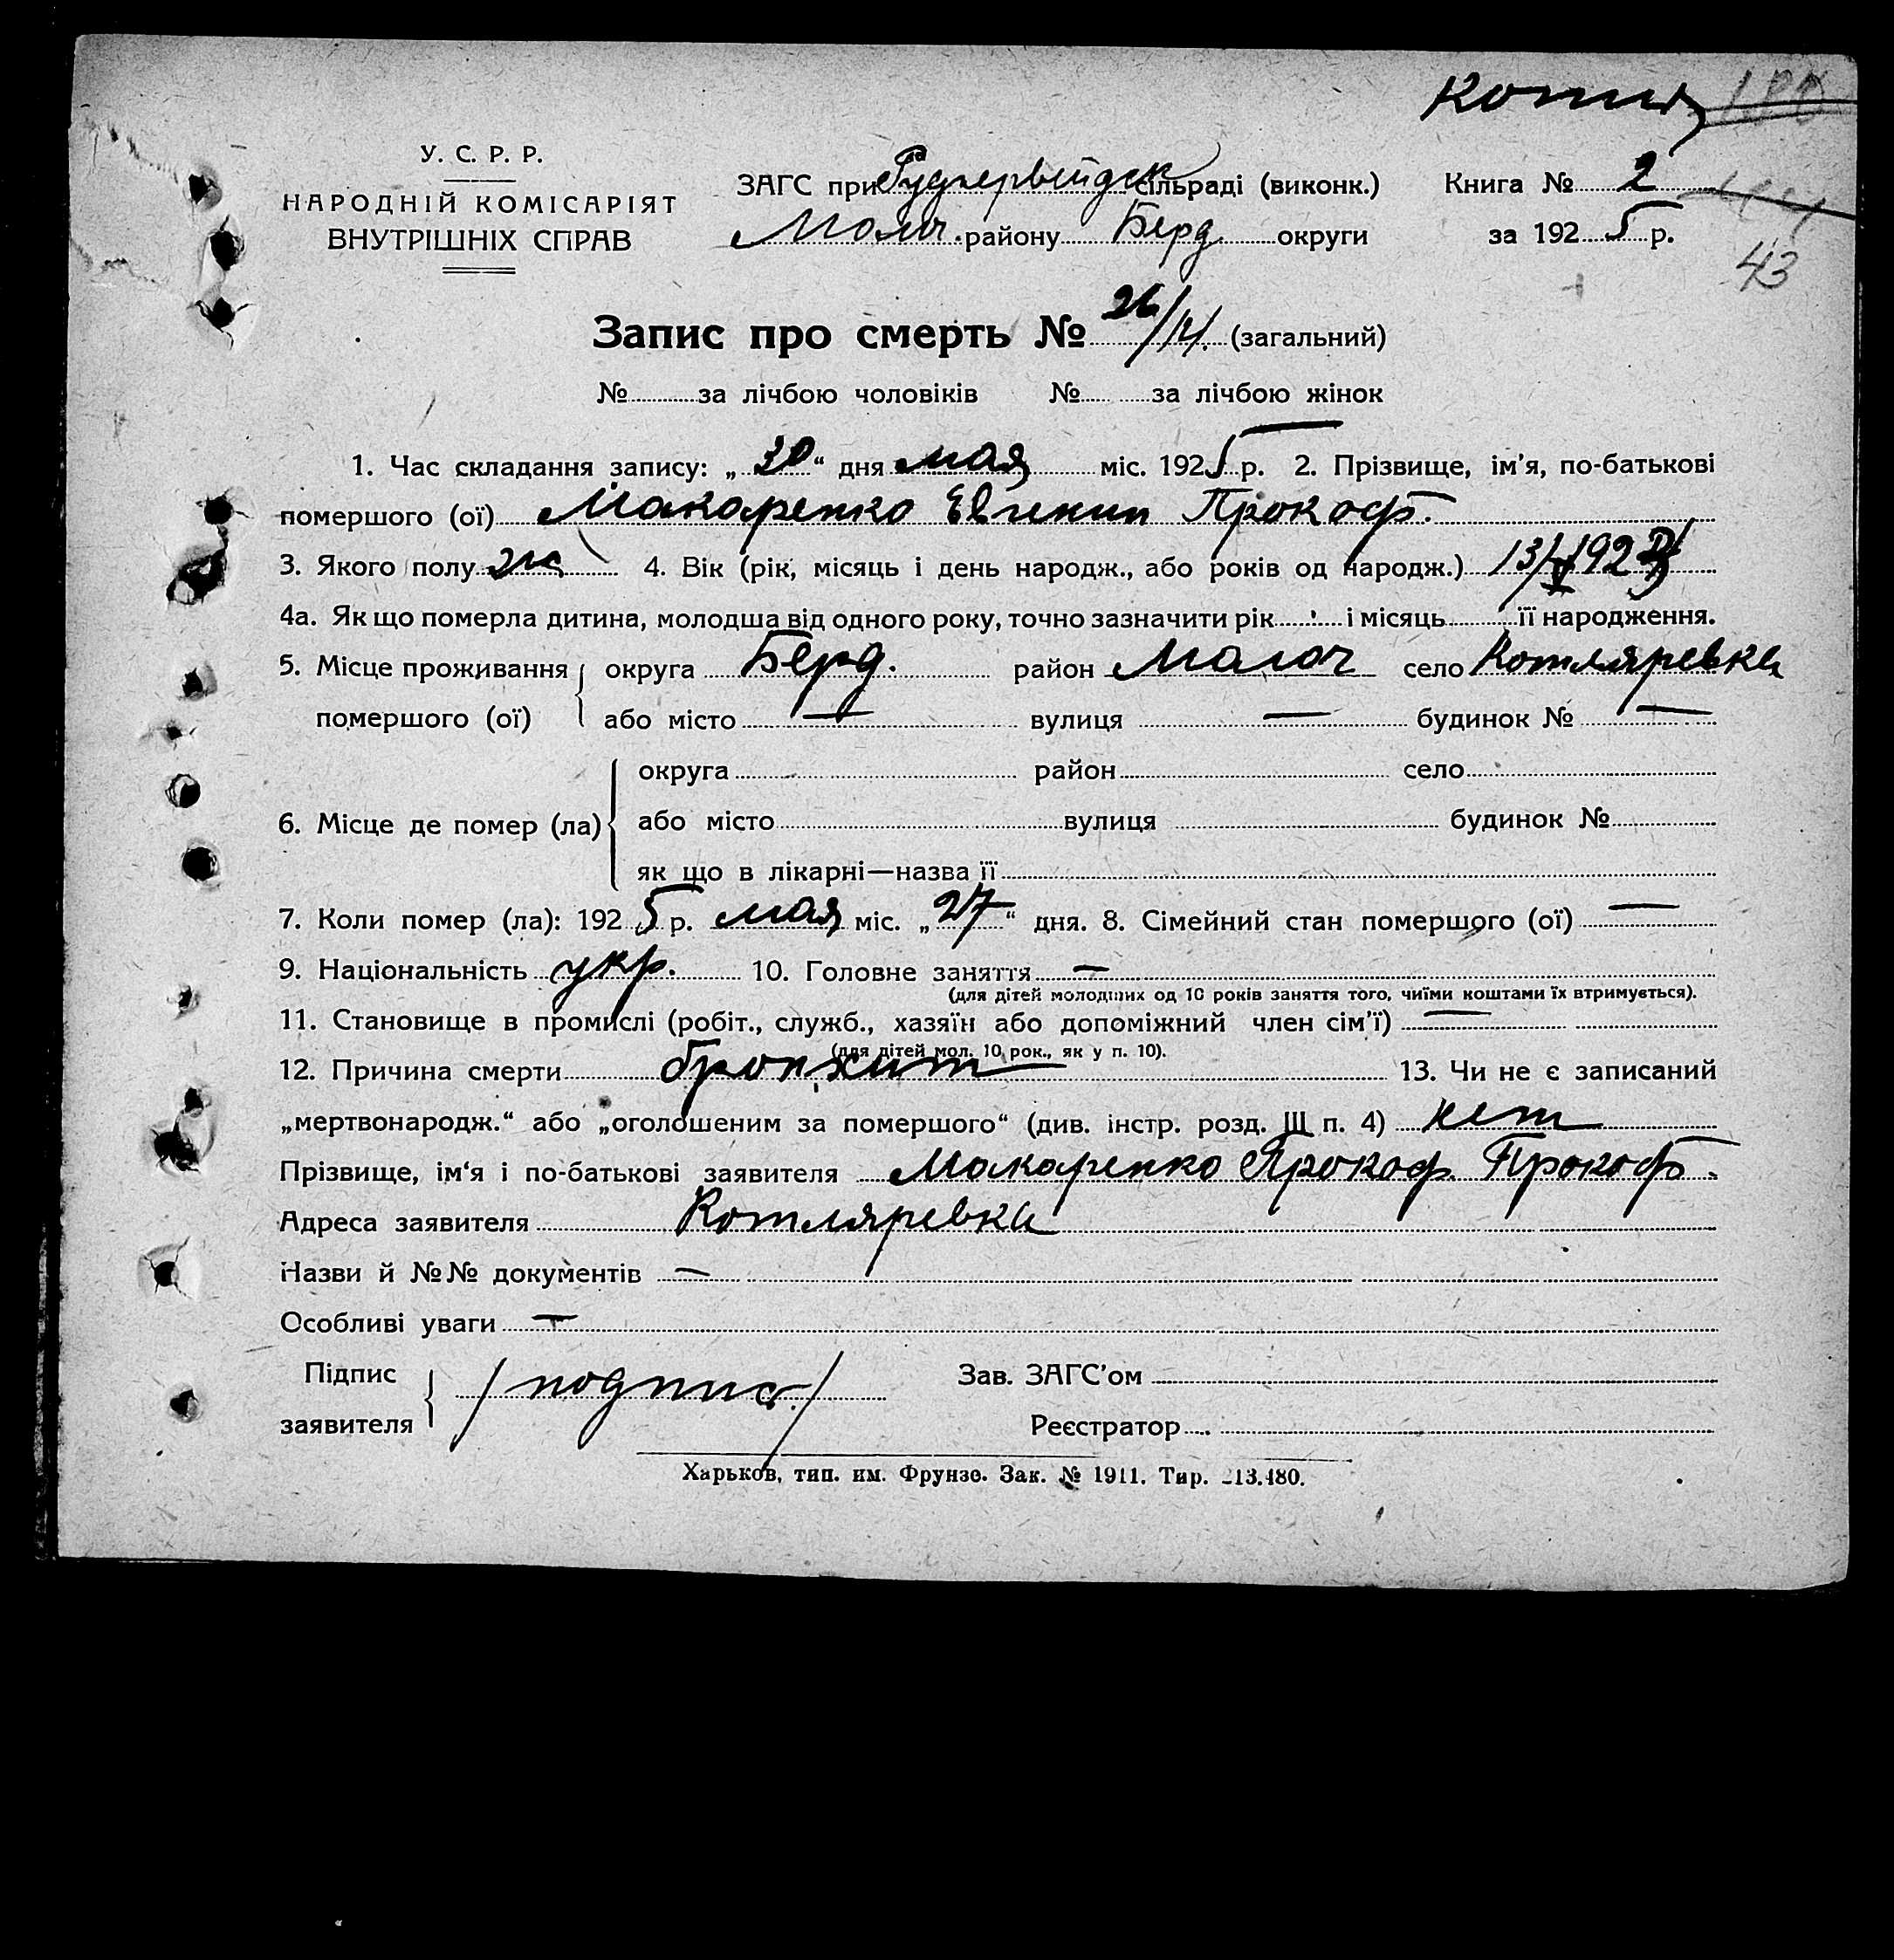 копия
У. С. Р. Р.
НАРОДНІЙ КОМІСАРІЯТ
ВНУТРІШНІХ СПРАВ
ЗАГС при сільраді (виконк.)
району Берд. округи
Книга № 2
за 1925 р.
43
Запис про смерть № 26/14. (загальний)
№ за лічбою чоловіків № за лічбою жінок
1. Час складання запису: „30“ дня мая міс. 1925 р. 2. Прізвище, ім'я, по-батькові
помершого (ої) Макаренко Евгения Прокоф.
3. Якого полу ж 4. Вік (рік, місяць і день народж., або років од народж.) 13/V
4а. Як що померла дитина, молодша від одного року, точно зазначити рік і місяць її народження.
5. Місце проживання округа Берд. район Молоч село Котляревка
помершого (ої) або місто — вулиця — будинок № —
6. Місце де помер (ла) округа район село
або місто вулиця будинок №
як що в лікарні—назва її
7. Коли помер (ла): 1925 р. мая міс. „27“ дня. 8. Сімейний стан помершого (ої) —
9. Національність укр. 10. Головне заняття —
(для дітей молодших од 10 років заняття того, чиїми коштами їх втримується).
11. Становище в промислі (робіт., служб., хазяїн або допоміжний член сім'ї) —
(для дітей мол. 10 рок., як у п. 10).
12. Причина смерти бронхит 13. Чи не є записаний
„мертвонародж.“ або „оголошеним за помершого“ (див. інстр. розд. III п. 4) нет
Прізвище, ім'я і по-батькові заявителя Макаренко Прокоф. Прокоф.
Адреса заявителя Котляревка
Назви й №№ документів —
Особливі уваги —
Підпис
заявителя /подпис./
Зав. ЗАГС'ом
Реєстратор
Харьков, тип. им. Фрунзе. Зак. № 1911. Тир. 213.480.